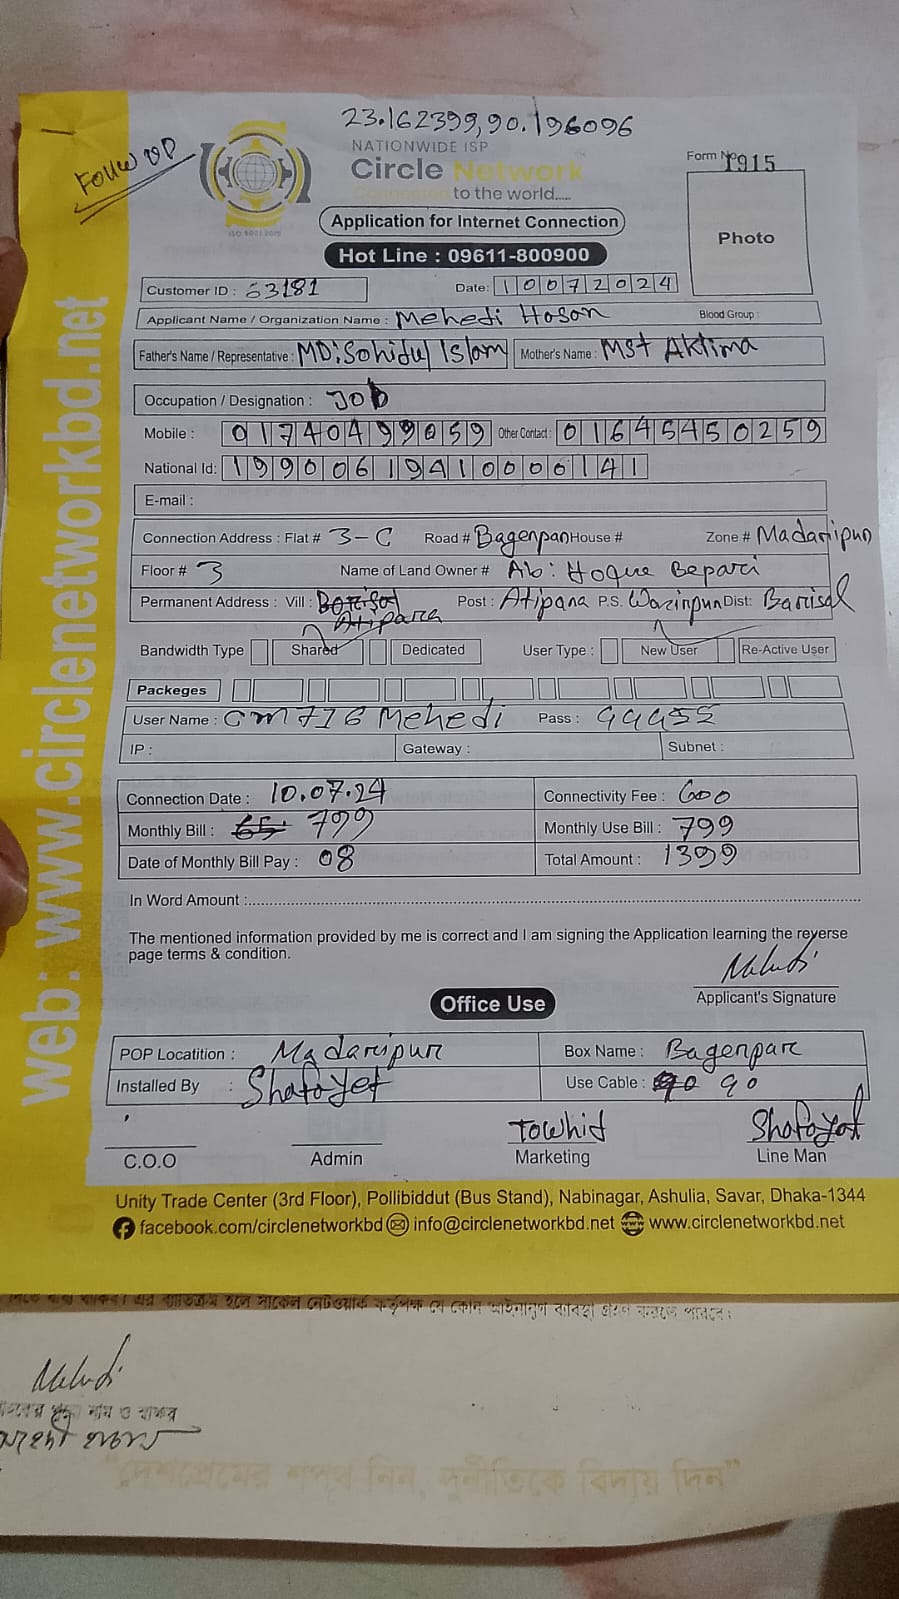 23.162399,90.196096
Follow UP
NATIONWIDE ISP
Circle Network
Connected to the world.....
ISO 9001:2015
Form No: 1915
Photo
Application for Internet Connection
Hot Line : 09611-800900
Customer ID : 63181 Date: 10072024
Applicant Name / Organization Name : Mehedi Hasan Blood Group :
Father's Name / Representative : MD: Sohidul Islam Mother's Name : Mst Aklima
Occupation / Designation : Job
Mobile : 01740499059 Other Contact : 01645450259
National Id: 19900619410000141
E-mail :
Connection Address : Flat # 3-C Road # Bagerpar House # Zone # Madaripur
Floor # 3 Name of Land Owner # Ab: Hoque Bepari
Permanent Address : Vill : Barisal Post : Atipara P.S. Wazirpur Dist: Barisal
Atipara
Bandwidth Type Shared Dedicated User Type : New User Re-Active User
Packeges
User Name : cm716 Mehedi Pass :
IP : Gateway : Subnet :
Connection Date : 10.07.24 Connectivity Fee : 600
Monthly Bill : 65 799 Monthly Use Bill : 799
Date of Monthly Bill Pay : 08 Total Amount : 1399
In Word Amount :
The mentioned information provided by me is correct and I am signing the Application learning the reverse
page terms & condition.
Mehedi
Applicant's Signature
Office Use
POP Locatition : Madaripur Box Name : Bagerpar
Installed By : Shafayet Use Cable : 90
Towhid Shafayet
C.O.O Admin Marketing Line Man
Unity Trade Center (3rd Floor), Pollibiddut (Bus Stand), Nabinagar, Ashulia, Savar, Dhaka-1344
facebook.com/circlenetworkbd info@circlenetworkbd.net www.circlenetworkbd.net
web: www.circlenetworkbd.net
সার্কেল নেটওয়ার্ক কর্তৃপক্ষ যে কোন আইনানুগ ব্যবস্থা গ্রহণ করতে পারবে।
Mehedi
নাম ও স্বাক্ষর
"দেশপ্রেমের শপথ নিন, দুর্নীতিকে বিদায় দিন"